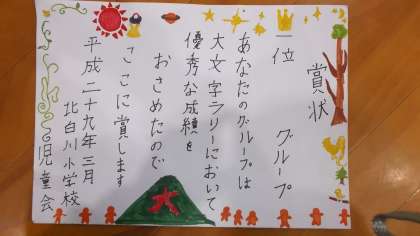 賞状
一位　グループ
あなたのグループは
大文字ラリーにおいて
優秀な成績を
おさめたので
ここに賞します
平成二十九年三月
北白川小学校
児童会
大